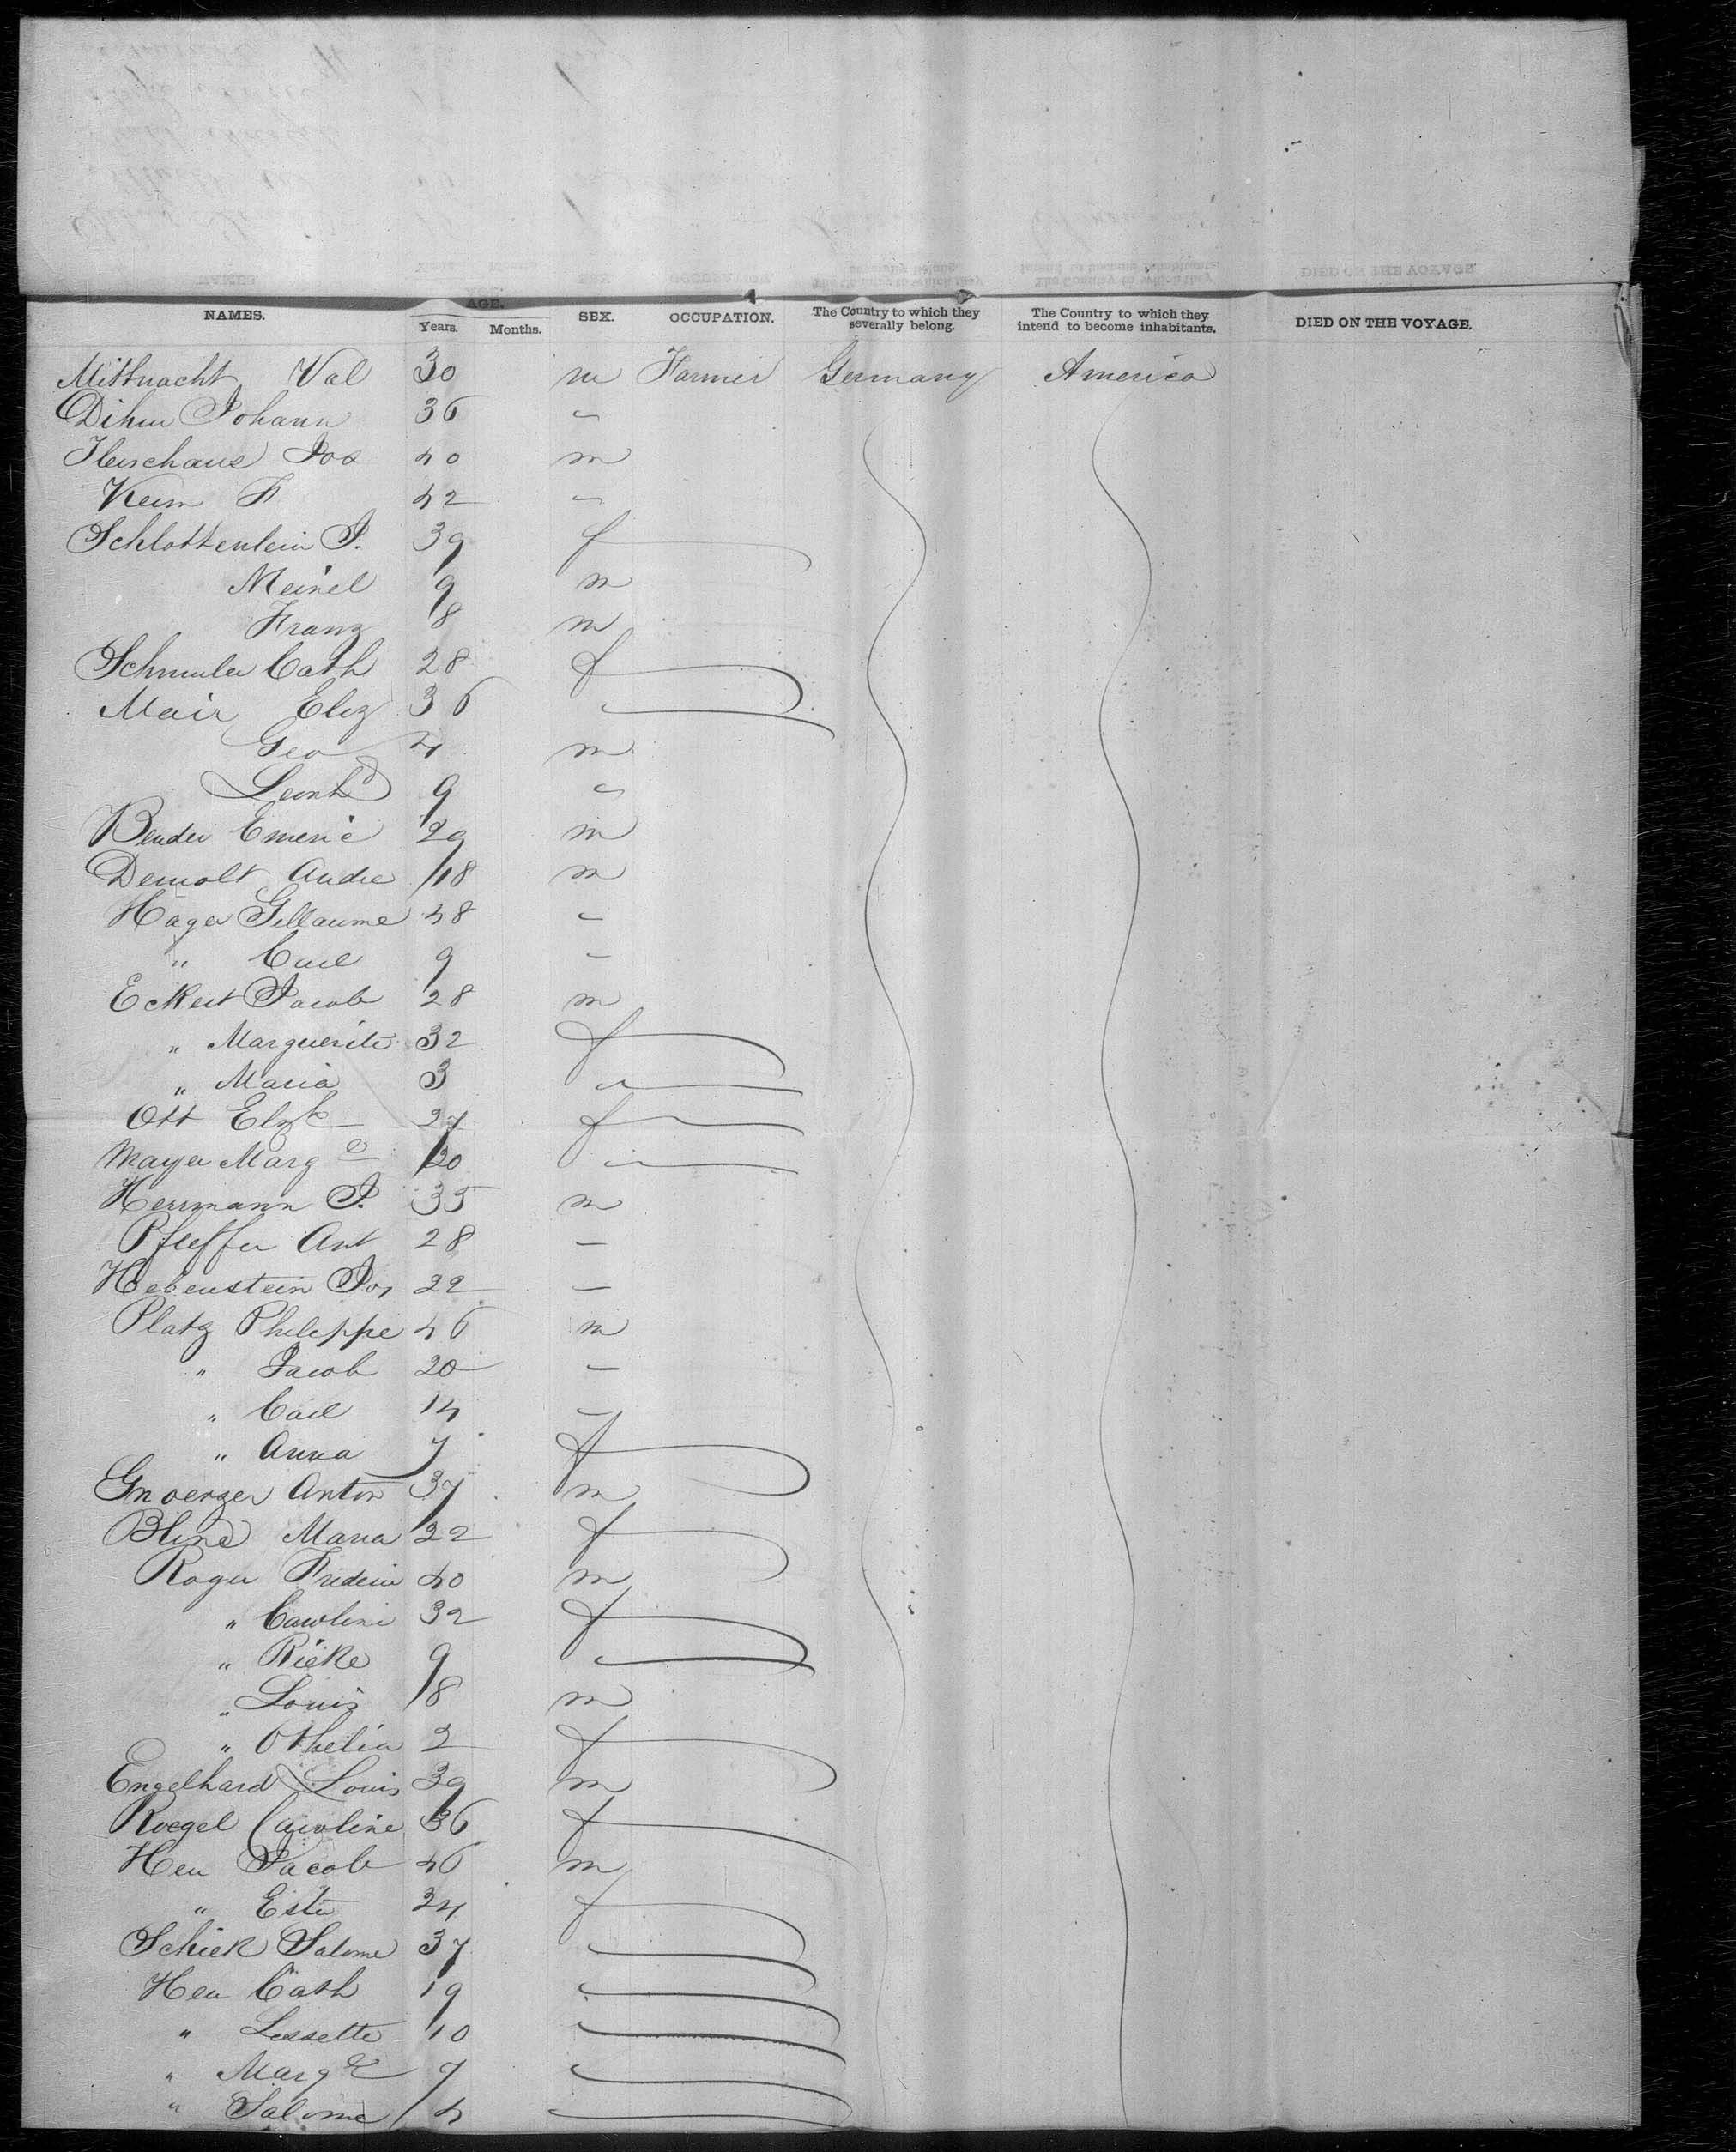 NAMES. AGE. Years. Months. SEX. OCCUPATION. The Country to which they severally belong. The Country to which they intend to become inhabitants. DIED ON THE VOYAGE.
Mittnacht Val 30 m Farmer Germany America
Dihm Johann 36 "
Fleischaus Jos 40 m
Keim F 42 "
Schlottenlein P. 39 f
Meinel 9 m
Franz 8 m
Cath 28 f
Mair Eliz 36 "
Geo 4 m
Leonhd 9 "
Bender Emeric 29 m
Demolt Andre 18 m
Hager Gillaume 48 "
" Carl 9 "
Eckert Jacob 28 m
" Marguerite 32 f
" Maria 3 "
Ott Elzth 27 f
Mayer Marge 20 "
Herrmann P. 35 m
Pfeffer Ant 28 "
Hebenstein Jos 22 "
Platz Philippe 46 m
" Jacob 20 "
" Carl 14 "
" Anna 7 f
Gnoerzer Anton 37 m
Blind Maria 22 f
Roger Frederic 40 m
" Caroline 32 f
" Rieke 9 "
" Louis 8 m
" Othelia 2 f
Engelhard Louis 39 m
Roegel Caroline 36 f
Heu Jacob 46 m
" Ester 24 f
Schiek Salome 37 "
Heu Cath 19 "
" Lissette 10 "
" Marge 7 "
" Salome 4 "